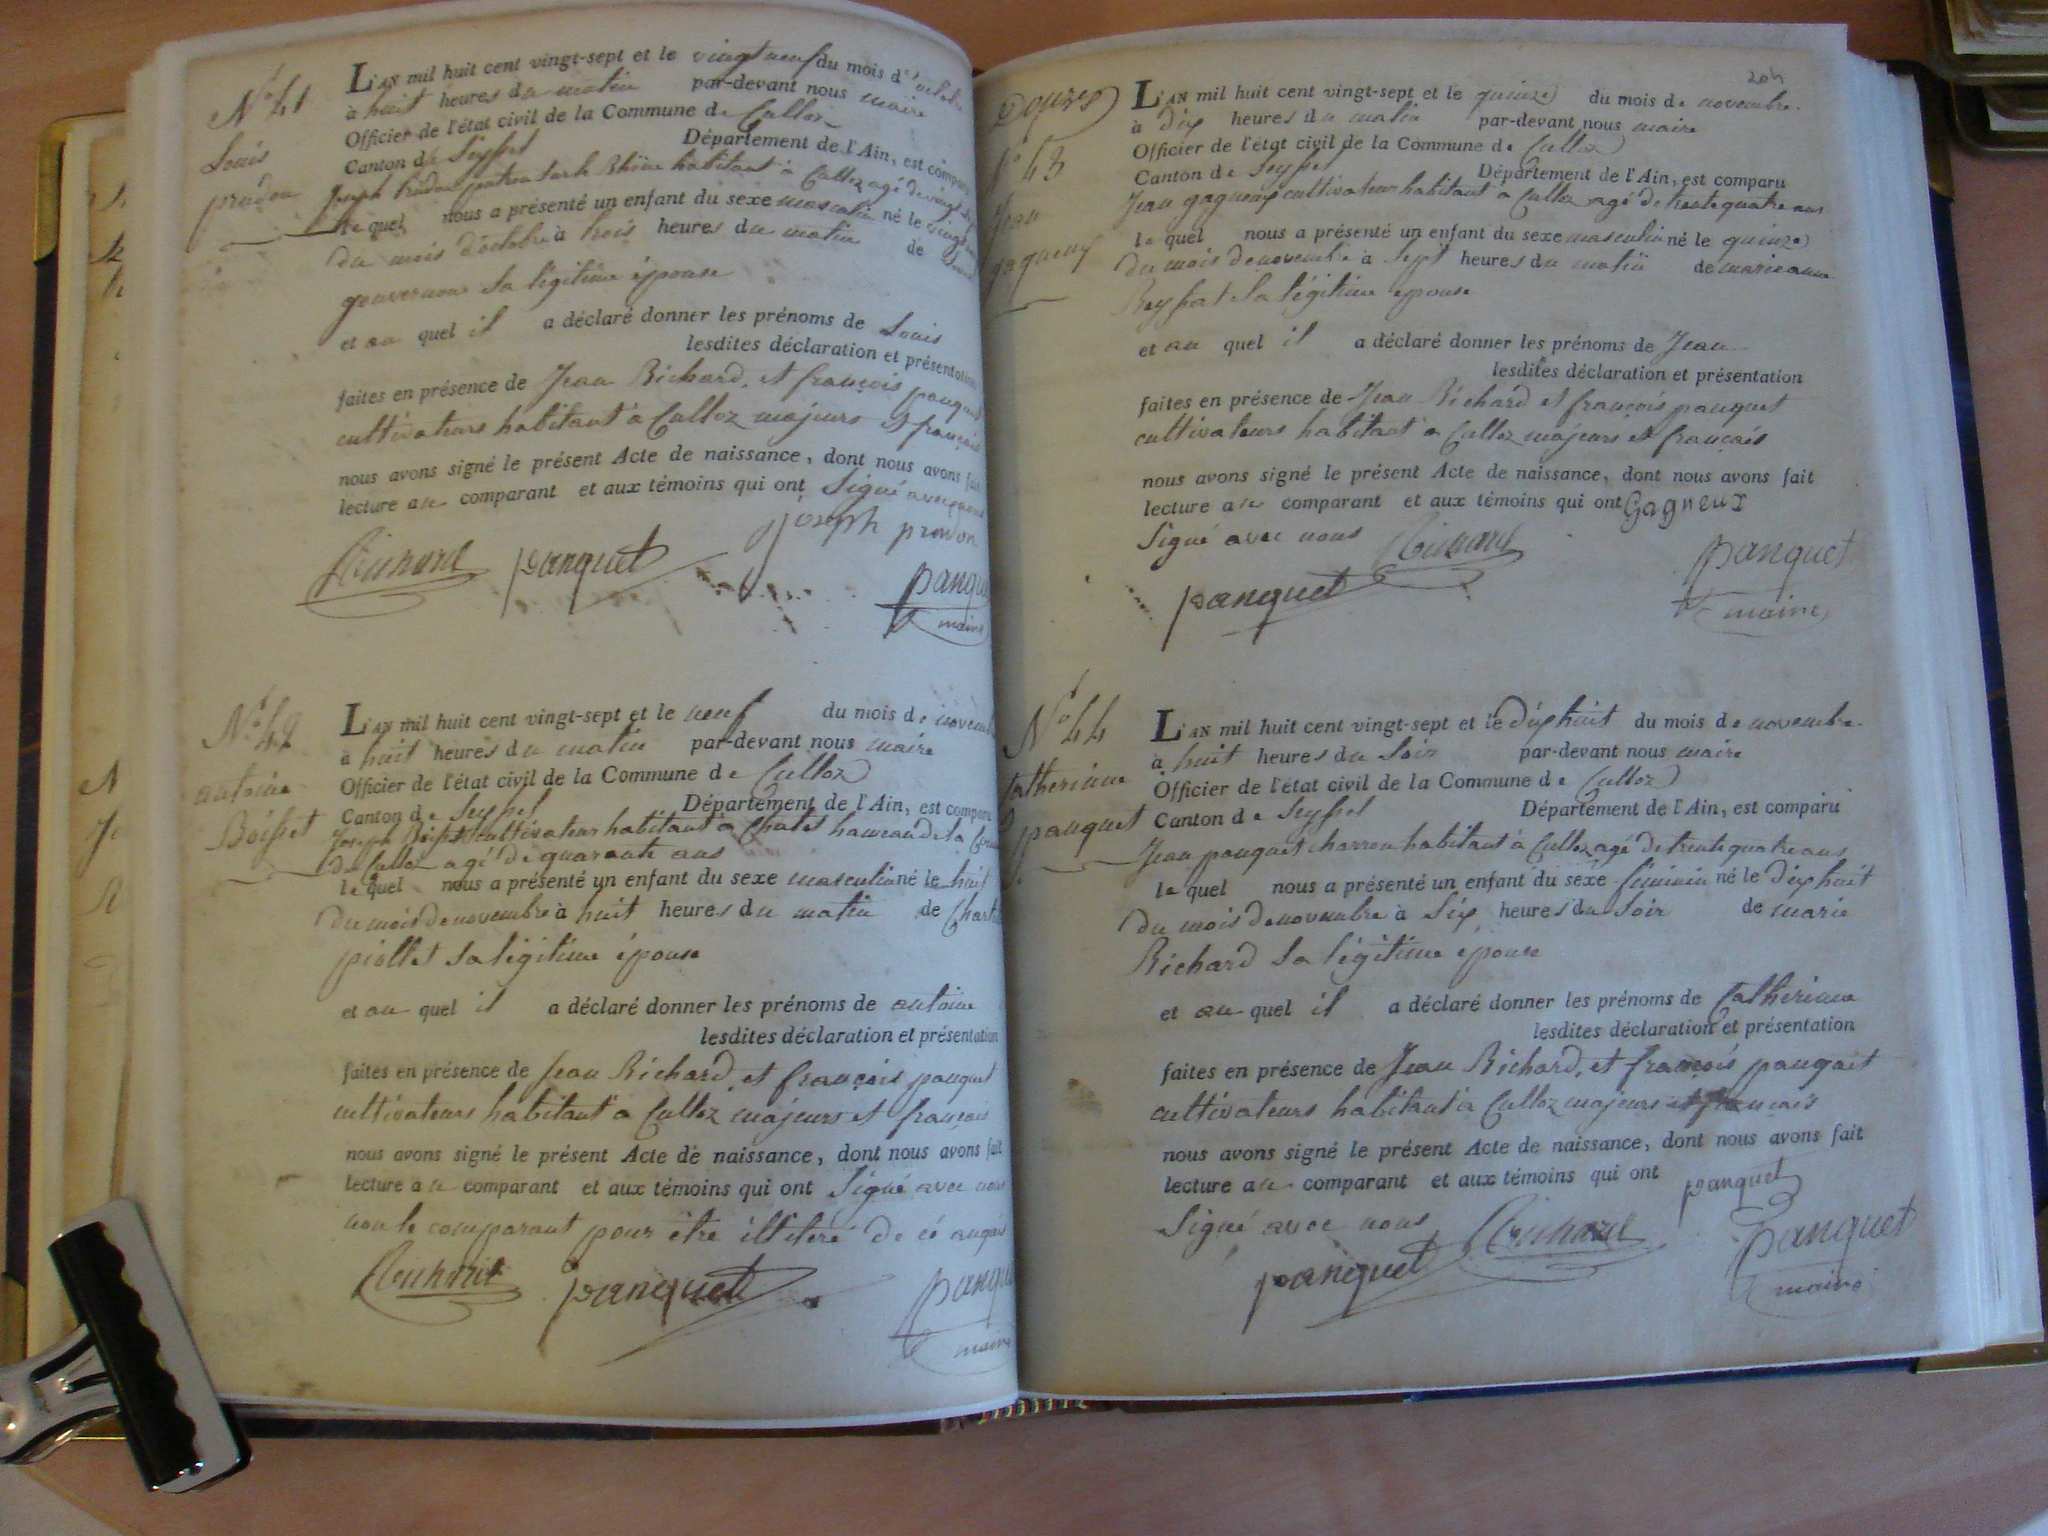 N° 41
Louis
prudon
L'AN mil huit cent vingt-sept et le vingt neuf du mois d'octobre
à huit heures du matin par-devant nous maire
Officier de l'état civil de la Commune de Culloz
Canton de Seyssel Département de l'Ain, est comparu
Joseph Prudon patron sur le Rhône habitant à Culloz agé de vingt
le quel nous a présenté un enfant du sexe masculin né le vingt
du mois d'octobre à trois heures du matin de
gouvernon sa légitime épouse
et au quel il a déclaré donner les prénoms de Louis
lesdites déclaration et présentation
faites en présence de Jean Richard, et françois panquet
cultivateurs habitant à Culloz majeurs et français
nous avons signé le présent Acte de naissance, dont nous avons fait
lecture au comparant et aux témoins qui ont Signé avec nous
joseph prudon
Richard panquet
panquet
maire
N° 42
antoine
Boisset
L'AN mil huit cent vingt-sept et le neuf du mois de novembre
à huit heures du matin par-devant nous maire
Officier de l'état civil de la Commune de Culloz
Canton de Seyssel Département de l'Ain, est comparu
Joseph Boisset cultivateur habitant à Chatel hameau de la
de Culloz agé de quarante ans
le quel nous a présenté un enfant du sexe masculin né le huit
du mois de novembre à huit heures du matin de
piollet sa légitime épouse
et au quel il a déclaré donner les prénoms de antoine
lesdites déclaration et présentation
faites en présence de Jean Richard, et françois panquet
cultivateurs habitant à Culloz majeurs et français
nous avons signé le présent Acte de naissance, dont nous avons fait
lecture au comparant et aux témoins qui ont Signé avec nous
non le comparant pour être illitéré de ce enquis
Richard panquet
panquet
maire
204
Douzes
N° 43
Jean
gagneux
L'AN mil huit cent vingt-sept et le quinze du mois de novembre
à dix heures du matin par-devant nous maire
Officier de l'état civil de la Commune de Culloz
Canton de Seyssel Département de l'Ain, est comparu
Jean gagneux cultivateur habitant à Culloz agé de trente quatre ans
le quel nous a présenté un enfant du sexe masculin né le quinze
du mois de novembre à sept heures du matin de marie anne
Reyfort sa légitime épouse
et au quel il a déclaré donner les prénoms de Jean
lesdites déclaration et présentation
faites en présence de Jean Richard et françois panquet
cultivateurs habitant à Culloz majeurs et français
nous avons signé le présent Acte de naissance, dont nous avons fait
lecture au comparant et aux témoins qui ont Gagneux
Signé avec nous Richard
panquet
panquet
maire
N° 44
Catherinne
panquet
L'AN mil huit cent vingt-sept et le dix huit du mois de novembre
à huit heures du soir par-devant nous maire
Officier de l'état civil de la Commune de Culloz
Canton de Seyssel Département de l'Ain, est comparu
Jean panquet charron habitant à Culloz agé de trente quatre ans
le quel nous a présenté un enfant du sexe féminin né le dix huit
du mois de novembre à Six heures du Soir de marie
Richard sa légitime épouse
et au quel il a déclaré donner les prénoms de Catherinne
lesdites déclaration et présentation
faites en présence de Jean Richard, et françois panquet
cultivateurs habitant à Culloz majeurs et français
nous avons signé le présent Acte de naissance, dont nous avons fait
lecture au comparant et aux témoins qui ont panquet
Signé avec nous Richard
panquet
panquet
maire